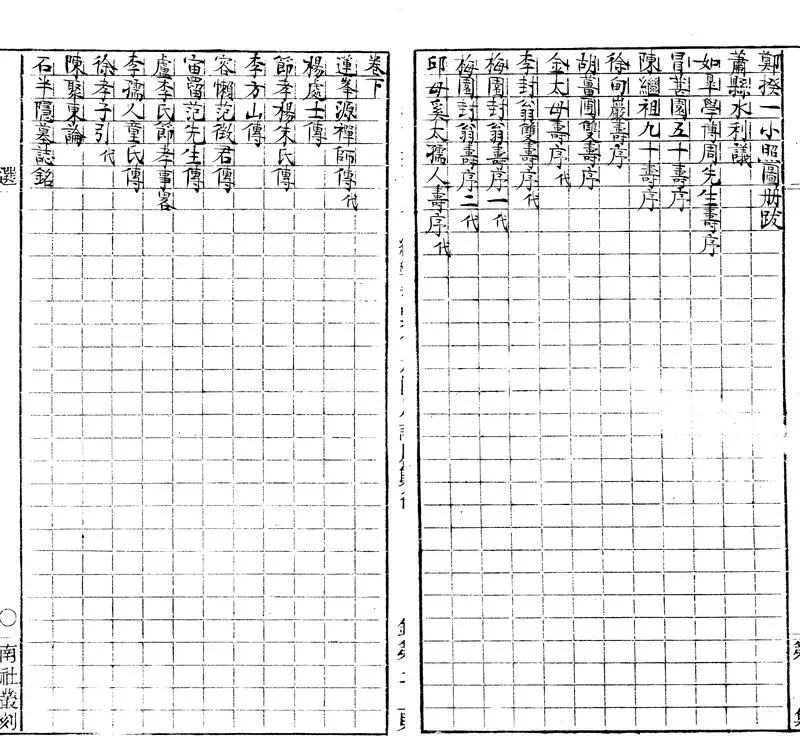 鄭揆一小照圖册跋
蕭縣水利議
如皐學博周先生壽序
冒葚園五十壽序
陳繼祖九十壽序
徐旬巖壽序
胡薑圃雙壽序
金太母壽序代
李封翁雙壽序代
梅園封翁壽序一代
梅園封翁壽序二代
邱母奚太孺人壽序代
第
集
卷下
蓮峯源禪師傳代
楊處士傳
節孝楊朱氏傳
李方山傳
容懶范徵君傳
宙留范先生傳
盧李氏節孝事畧
李孺人童氏傳
徐孝子引代
陳聚東論
石半隱墓誌銘
選
〇南社叢刻